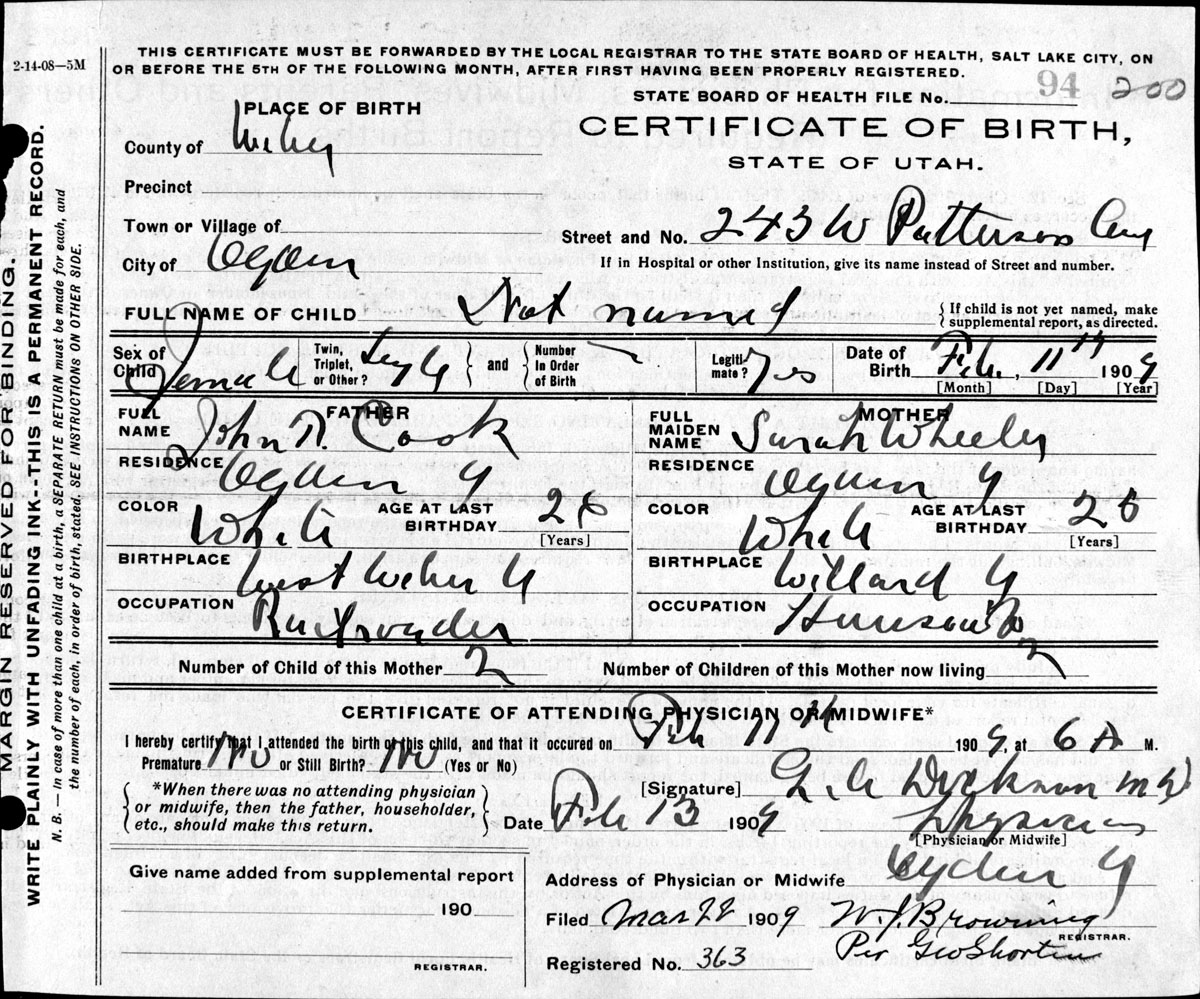 THIS CERTIFICATE MUST BE FORWARDED BY THE LOCAL REGISTRAR TO THE STATE BOARD OF HEALTH, SALT LAKE CITY, ON
2-14-08—5M
OR BEFORE THE 5TH OF THE FOLLOWING MONTH, AFTER FIRST HAVING BEEN PROPERLY REGISTERED.
MARGIN RESERVED FOR BINDING.
WRITE PLAINLY WITH UNFADING INK--THIS IS A PERMANENT RECORD.
N. B. — In case of more than one child at a birth, a SEPARATE RETURN must be made for each, and
the number of each, in order of birth, stated. SEE INSTRUCTIONS ON OTHER SIDE.
STATE BOARD OF HEALTH FILE No. 94 200
PLACE OF BIRTH
CERTIFICATE OF BIRTH,
STATE OF UTAH.
County of Weber
Precinct
Town or Village of
Street and No. 243 W Patterson Ave
City of Ogden
If in Hospital or other Institution, give its name instead of Street and number.
FULL NAME OF CHILD Not named
{ If child is not yet named, make
supplemental report, as directed.
Sex of Child Female
Twin, Triplet, or Other? } and { Number In Order of Birth
Legitimate? Yes
Date of Birth Feb. 11th 1909
[Month] [Day] [Year]
FATHER
FULL NAME John Cook
MOTHER
FULL MAIDEN NAME Sarah Wheeler
RESIDENCE Ogden U
RESIDENCE Ogden U
COLOR White
AGE AT LAST BIRTHDAY
[Years]
COLOR White
AGE AT LAST BIRTHDAY
[Years]
BIRTHPLACE West Weber U
BIRTHPLACE Willard U
OCCUPATION Railroader
OCCUPATION
Number of Child of this Mother 2
Number of Children of this Mother now living 2
CERTIFICATE OF ATTENDING PHYSICIAN OR MIDWIFE*
I hereby certify that I attended the birth of this child, and that it occured on Feb 11th 1909, at 6 A M.
Premature No or Still Birth? No (Yes or No)
{ *When there was no attending physician
or midwife, then the father, householder,
etc., should make this return. }
[Signature] Dickson MD
Date Feb 13 1909
Physician
[Physician or Midwife]
Give name added from supplemental report
Address of Physician or Midwife Ogden U
190
Filed Mar 22 1909
W. J. Browning
REGISTRAR.
Per Geo Shorten
Registered No. 363
REGISTRAR.